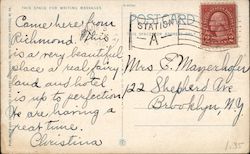 THIS SPACE FOR WRITING MESSAGES
POSTCARD
STATION
A
Came here from
Richmond. This
is a very beautiful
place a real fairy
land and hotel
is up to perfection
We are having a
great time.
Christina
Mrs. C. Mayerhofer
122 Shepherd Ave
Brooklyn, N.Y.
1.35